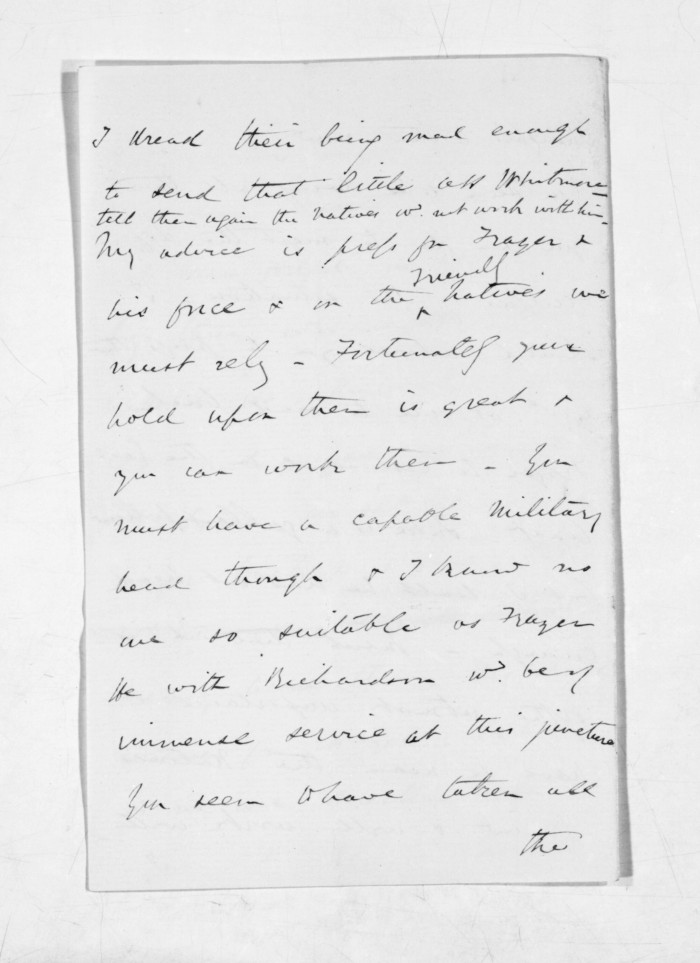 I dread their being mad enough
to send that little ass Whitmore
tell them again the natives wd. not work with him -
My advice is press for Frazer &
his force & on the ^ Friendly natives we
must rely - Fortunately your
hold upon them is great &
you can work them - You
must have a capable military
head though & I know no
one so suitable as Frazer
He with Richardson wd. be of
immense service at this juncture
You seem to have taken all
the